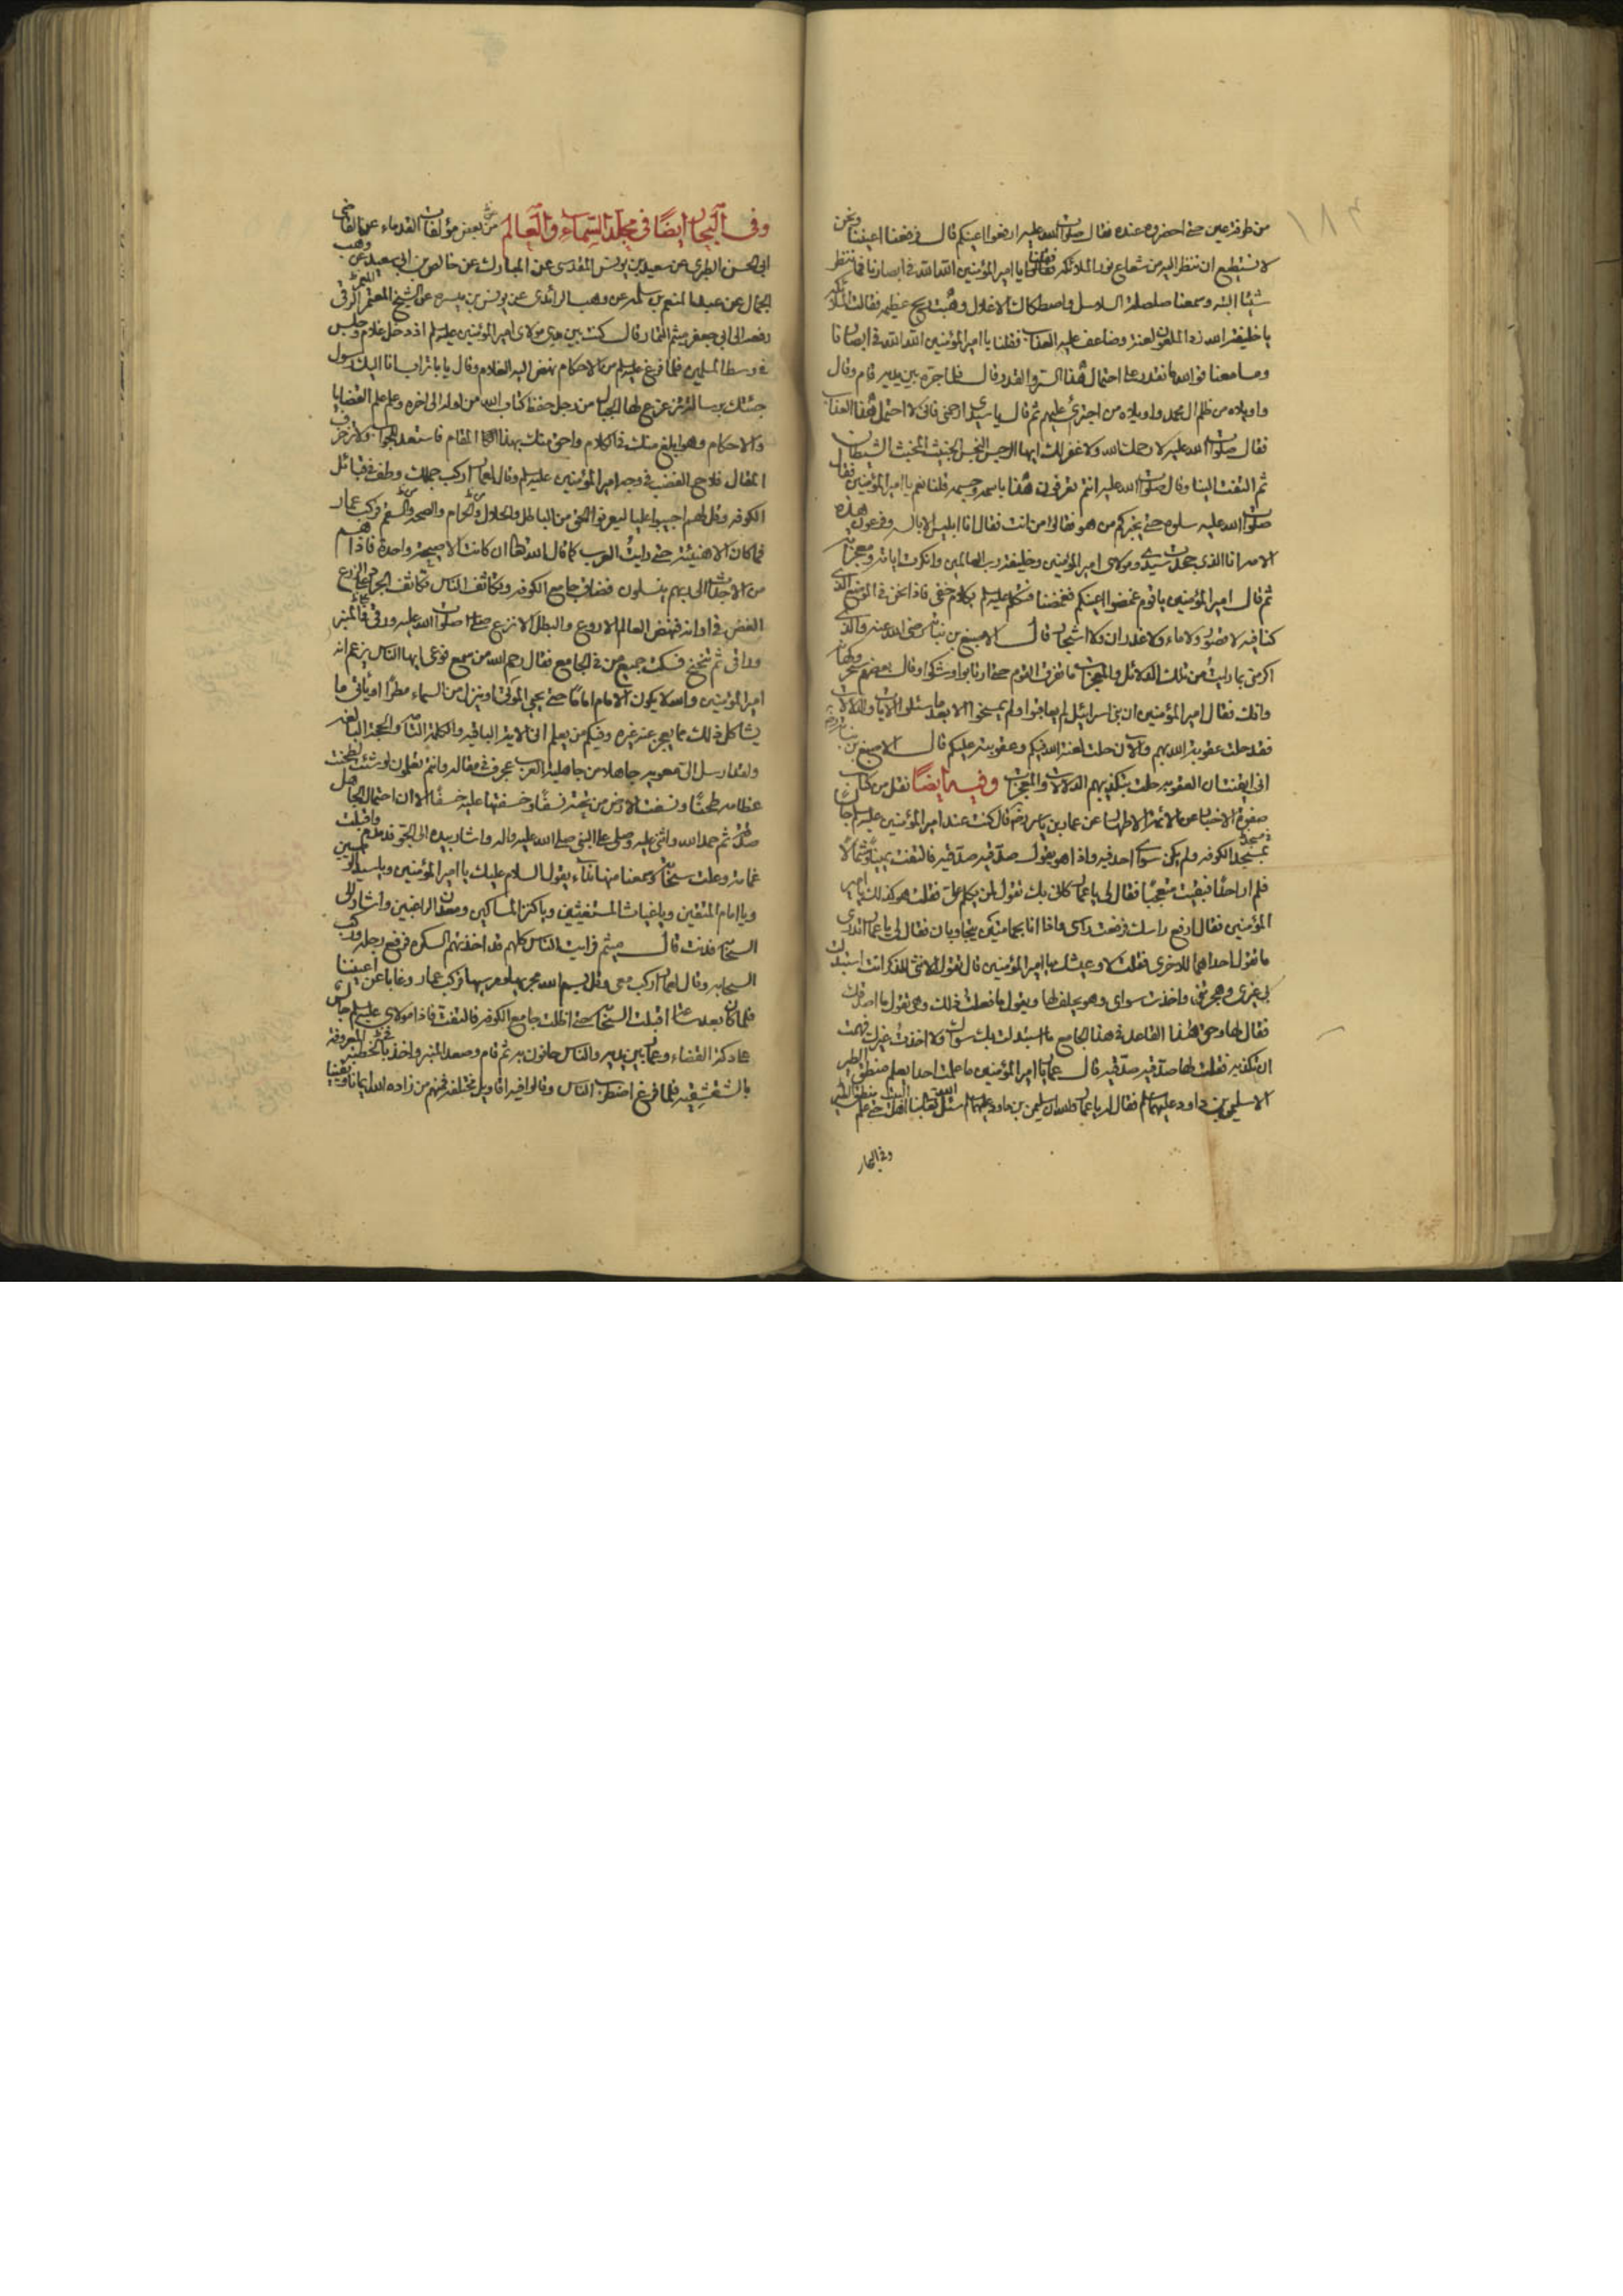 ١٨٣
من طرفة عين حتى احضروه عنده فقال صلوات الله عليه ارفعوا اعينكم قال فرفعنا اعيننا ونحن
لا نستطيع ان ننظر اليه من شعاع نور الملائكة فقلنا يا امير المؤمنين الله الله في ابصارنا فما ننظر
شيئا البتة وسمعنا صلصلة السلاسل واصطكاك الاغلال وهبت ريح عظيمة فقالت الملائكة
يا خليفة الله زد الملعون لعنة وضاعف عليه العذاب فقلنا يا امير المؤمنين الله الله في ابصارنا
ومسامعنا فوالله ما نقدر على احتمال هذا السر والقدر قال فلما جره بين يديه قام وقال
واويلاه من ظلم ال محمد واويلاه من اجترئ عليهم ثم قال يا سيدي ارحمني فاني لا احتمل هذا العذاب
فقال صلوات الله عليه لا رحمك الله ولا غفر لك ايها الرجس النجس الخبيث المخبث الشيطان
ثم التفت الينا وقال صلوات الله عليه انتم تعرفون هذا باسمه وجسمه قلنا نعم يا امير المؤمنين فقال
صلوات الله عليه سلوه حتى يخبركم من هو فقالوا من انت فقال انا ابليس الابالسة وفرعون هذه
الامة انا الذي جحدت سيدي ومولاي امير المؤمنين وخليفة رب العالمين وانكرت اياته ومعجزاته
ثم قال امير المؤمنين يا قوم غمضوا اعينكم فغمضنا فتكلم عليه السلم بكلام خفي فاذا نحن في الموضع الذي
كنا فيه لا قصور ولا ماء ولا غدران ولا اشجار قال الاصبغ بن نباتة رضي الله عنه والذي
اكرمني بما رايت من تلك الدلائل والمعجزات ما تفرق القوم حتى ارتابوا وشكوا وقال بعضهم سحر وكهانة
وافك فقال امير المؤمنين ان بني اسرائيل لم يعاقبوا ولم يمسخوا الا بعد ما سئلوا الايات والدلالات
فقد حلت عقوبة الله بهم والان حلت لعنة الله فيكم وعقوبته عليكم قال الاصبغ بن نباتة
اني ايقنت ان العقوبة حلت بتكذيبهم الدلالات والمعجزات وفيه ايضا نقل من كتاب
صفوة الاخبار عن الائمة الاطهار عن عمار بن ياسر رضه قال كنت عند امير المؤمنين عليه السلم جالسا
بمسجد الكوفة ولم يكن سواي احد فيه واذا هو يقول صدقيه صدقيه فالتفت يمينا وشمالا
فلم ار احدا فبقيت متعجبا فقال لي يا عمار كاني بك تقول لمن يكلم علي فقلت هو كذلك يا امير
المؤمنين فقال ارفع راسك فرفعت راسي واذا انا بحمامتين يتجاوبان فقال لي يا عمار اتدري
ما تقول احداهما للاخرى فقلت لا وعيشك يا امير المؤمنين قال تقول الانثى للذكر انت استبدلت
بي غيري وهجرتني واخذت سواي وهو يحلف لها ويقول ما فعلت ذلك وهي تقول ما اصدقك
فقال لها وحق هذا القاعد في هذا الجامع ما استبدلت بك سواك ولا اخذت غيرك فهمت
ان تكذبه فقلت لها صدقيه صدقيه قال عمار يا امير المؤمنين ما علمت احدا يعلم منطق الطير
الا سليمن بن داود عليهما السلم فقال له يا عمار والله ان سليمن بن داود عليهما السلم سئل الله تعالى بنا اهل البيت حتى علم منطق الطير
وفي البحار
وفي البحار ايضا في مجلد السماء والعالم عن بعض مؤلفات القدماء عن القاضي
ابي الحسن الطبري عن سعيد بن يونس المقدسي عن المبارك عن خالص بن ابي سعيد عن وهب
الجمال عن عبد المنعم بن سلمة عن وهب الرائدي عن يونس بن ميسرة عن الشيخ المعتمر الرقي
رفعه الى ابي جعفر ميثم التمار قال كنت بين يدي مولاي امير المؤمنين عليه السلم اذ دخل غلام وجلس
في وسط المسلمين فلما فرغ عليه السلم من الاحكام نهض اليه الغلام وقال يا با تراب انا اليك رسول
جئتك برسالة تزعزع لها الجبال من رجل حفظ كتاب الله من اوله الى اخره وعلم علم القضايا
والاحكام وهو ابلغ منك في الكلام واحق منك بهذا المقام فاستعد للجواب ولا تزخرف
المقال فلاح الغضب في وجه امير المؤمنين عليه السلم وقال لعمار اركب جملك وطف في قبائل
الكوفة وقل لهم اجيبوا عليا ليعرفوا الحق من الباطل والحلال والحرام والصحة والسقم فركب عمار
فما كان الا هنيئة حتى رايت العرب كما قال الله تعالى ان كانت الا صيحة واحدة فاذا هم
من الاجداث الى ربهم ينسلون فضاق جامع الكوفة وتكاثف الناس تكاثف الجراد على الزرع
الغض في اوانه فنهض العالم الاروع والبطل الانزع صلوات الله عليه ورقى في المنبر
وراقى ثم تنحنح فسكت جميع من في الجامع فقال رحم الله من سمع فوعى ايها الناس يزعم انه
امير المؤمنين والله لا يكون الامام اماما حتى يحيي الموتى او ينزل من السماء مطرا او ياتي بما
يشاكل ذلك مما يعجز عنه غيره وفيكم من يعلم اني الاية الباقية والكلمة التامة والحجة البالغة
ولقد ارسل الي معوية جاهلا من جاهلية العرب عجرف في مقاله وانتم تعلمون لو شئت لطحنت
عظامه طحنا ونسفت الارض من تحته نسفا وخسفتها عليه خسفا الا ان احتمال الجاهل
صدقة ثم حمد الله واثنى عليه وصلى على النبي صلى الله عليه واله واشار بيده الى الجو فدمدم واقبلت
غمامة وعلت سحابة وسمعنا منها نداء يقول السلام عليك يا امير المؤمنين ويا سيد الوصيين
ويا امام المتقين ويا غياث المستغيثين ويا كنز المساكين ومعدن الراغبين واشار الى
السحابة فدنت قال ميثم فرايت الناس كلهم قد اخذتهم السكرة فرفع رجله وركب
السحابة وقال لعمار اركب معي وقل بسم الله مجريها ومرسيها فركب عمار وغابا عن اعيننا
فلما كان بعد ساعة اقبلت السحابة حتى اظلت جامع الكوفة فالتفت فاذا مولاي عليه السلم جالس
على دكة القضاء وعمار بين يديه والناس حافون به ثم قام وصعد المنبر واخذ بالخطبة المعروفة
بالشقشقية فلما فرغ اضطرب الناس وقالوا فيه اقاويل مختلفة فمنهم من زاده الله ايمانا ويقينا